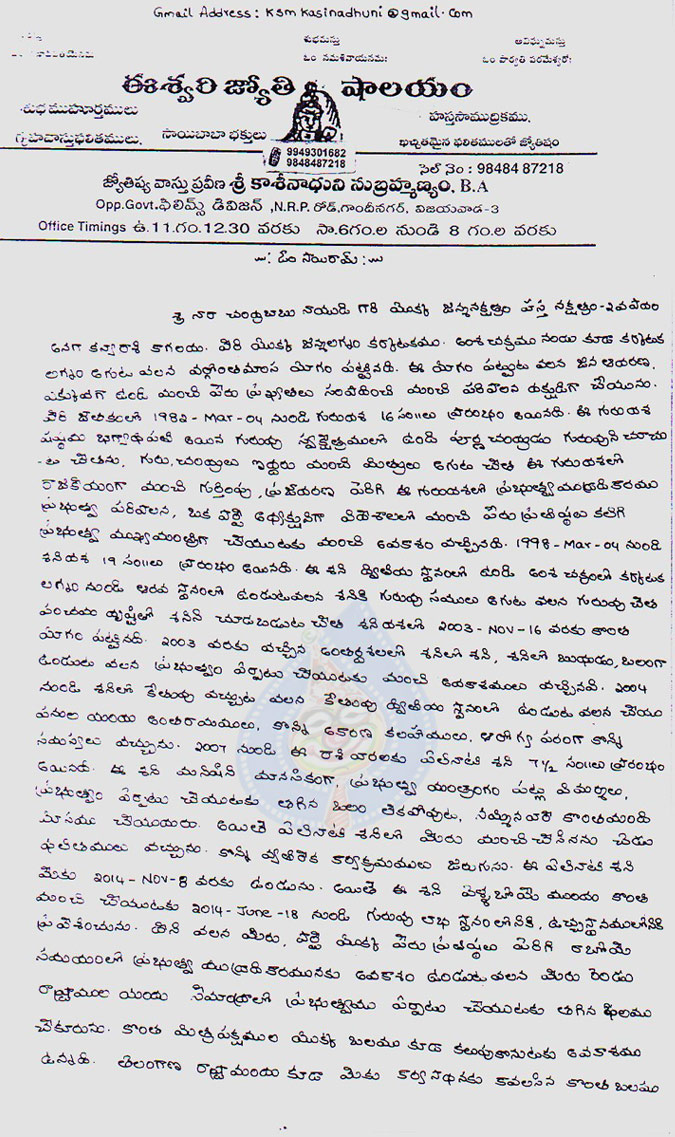 Gmail Address: ksmkasinadhuni@gmail.com
శుభమస్తు
అవిఘ్నమస్తు
ఓం నమశివాయనమః
ఓం పార్వతి పరమేశ్వరోః
ఈశ్వరి జ్యోతి షాలయం
శుభముహూర్తములు
హస్తసాముద్రికము.
గృహవాస్తుఫలితములు.
సాయిబాబా భక్తులు
ఖచ్చితమైన ఫలితములతో జ్యోతిషం
9949301682
9848487218
సెల్ నెం : 98484 87218
జ్యోతిష్య వాస్తు ప్రవీణ శ్రీ కాశీనాధుని సుబ్రహ్మణ్యం, B.A
Opp.Govt.ఫిలిమ్స్ డివిజన్ ,N.R.P. రోడ్,గాంధీనగర్, విజయవాడ-3
Office Timings ఉ.11.గం.12.30 వరకు సా.6గం.ల నుండి 8 గం.ల వరకు
~: ఓం సాయిరామ్ :~
శ్రీ నారా చంద్రబాబు నాయుడి గారి యొక్క జన్మనక్షత్రం హస్త నక్షత్రం-2వపాదం
అనగా కన్యారాశి కాగలదు. వీరి యొక్క జన్మలగ్నం కర్కాటకము. అంశచక్రము నందు కూడ కర్కాటక
లగ్నం అగుట వలన వర్గోత్తమాస యోగం పట్టినది. ఈ యోగం పట్టుట వలన జన ఆదరణ,
ఎక్కువగా ఉండి మంచి పేరు ప్రఖ్యాతలు సంపాదించి మంచి పరిపాలన దక్షుడిగా చేయును.
వీరి జాతకంలో 1982-Mar-04 నుండి గురుదశ 16 సం॥లు ప్రారంభం అయినది. ఈ గురుదశ
షష్టమ భాగ్యాధిపతి అయిన గురువు స్వక్షేత్రములో ఉండి పూర్ణ చంద్రుడు గురువుని చూచు
-ట చేతను, గురు,చంద్రులు ఇద్దరు మంచి మిత్రులు అగుట చేత ఈ గురుదశలో
రాజకీయంగా మంచి గుర్తింపు ,ప్రజాదరణ పెరిగి ఈ గురుదశలో ప్రభుత్వాముద్రాధికారము
ప్రభుత్వ పరిపాలన, ఒక పార్టీ అధ్యక్షునిగా విదేశాలలో మంచి పేరు ప్రతిష్ఠలు కలిగి
ప్రభుత్వ ముఖ్యమంత్రిగా చేయుటకు మంచి అవకాశం వచ్చినది. 1998-Mar-04 నుండి
శనిదశ 19 సం॥లు ప్రారంభం అయినది. ఈ శని ద్వితీయ స్థానంలో ఉండి అంశ చక్రంలో కర్కాటక
లగ్నం నుండి ఆరవ స్థానంలో ఉండుటవలన శనికి గురువు సములు అగుట వలన గురువు చేత
పంచమ దృష్టితో శనిని చూడబడుట చేత శనిదశలో 2003-NOV-16 వరకు కొంత
యోగం పట్టినది. 2003 వరకు వచ్చిన అంతర్దశలలో శనిలో శని, శనిలో బుధుడు,బలంగా
ఉండుట వలన ప్రభుత్వం ఏర్పాటు చేయుటకు మంచి అవకాశములు వచ్చినవి. 2004
నుండి శనిలో కేతువు వచ్చుట వలన కేతువు ద్వితీయ స్థానంలో ఉండుట వలన చేయు
పనుల యందు అంతరాయములు, కొన్ని అకారణ కలహములు, ఆరోగ్య పరంగా కొన్ని
సమస్యలు వచ్చును. 2007 నుండి ఈ రాశి వారలకు ఏలినాటి శని 7½ సం॥లు ప్రారంభం
అయినది. ఈ శని మనిషిని మానసికంగా, ప్రభుత్వ యంత్రాంగం పట్ల విమర్శలు,
ప్రభుత్వం ఏర్పాటు చేయుటకు తగిన బలం లేకపోవుట, నమ్మినవారే కొంతమంది
మోసము చేయుదురు. అయితే ఏలినాటి శనిలో మీరు మంచి చేసినను చెడు
ఫలితములు వచ్చును. కొన్ని వ్యతిరేక కార్యక్రమములు జరుగును. ఈ ఏలినాటి శని
మీకు 2014-NOV-8 వరకు ఉండును. అయితే ఈ శని వెళ్ళబోయే ముందు కొంత
మంచి చేయుటకు 2014-June-18 నుండి గురువు లాభ స్థానంలోనికి, ఉచ్ఛస్థానములోనికి
ప్రవేశించును. దీని వలన మీరు, పార్టీ యొక్క పేరు ప్రతిష్ఠలు పెరిగి రాబోయే
సమయంలో ప్రభుత్వ ముద్రాధికారమునకు అవకాశం ఉండుట వలన మీరు రెండు
రాష్ట్రాముల యందు సీమాంధ్రాలో ప్రభుత్వము ఏర్పాటు చేయుటకు తగిన ఫలము
చేకూరును. కొంత మిత్రపక్షముల యొక్క బలము కూడ కలుపుకొనుటకు అవకాశము
ఉన్నది. తెలంగాణ రాష్ట్రామందు కూడ మీకు కార్యసాధనకు కావలసిన కొంత బలము